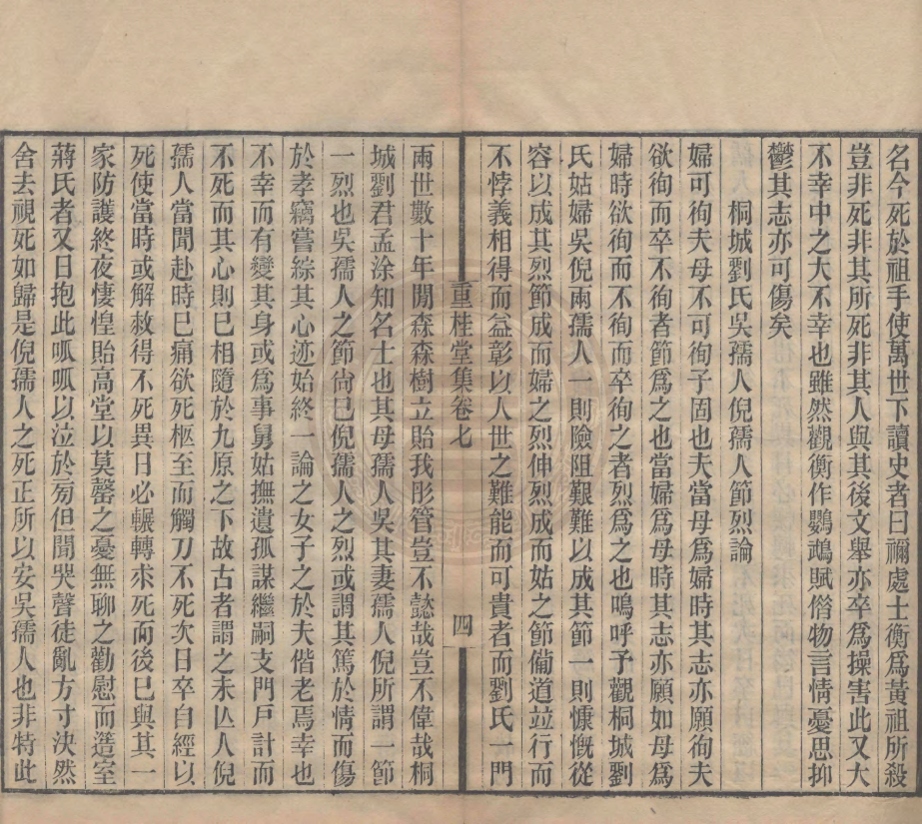 名今死於祖手使萬世下讀史者曰禰處士衡為黃祖所殺
豈非死非其所死非其人與其後文舉亦卒為操害此又大
不幸中之大不幸也雖然觀衡作鸚鵡賦俗物言情憂思抑
鬱其志亦可傷矣
桐城劉氏吳孺人倪孺人節烈論
婦可徇夫母不可徇子固也夫當母為婦時其志亦願徇夫
欲徇而卒不徇者節為之也當婦為母時其志亦願如母為
婦時欲徇而不徇而卒徇之者烈為之也嗚呼予觀桐城劉
氏姑婦吳倪兩孺人一則險阻艱難以成其節一則慷慨從
容以成其烈節成而婦之烈伸烈成而姑之節備道並行而
不悖義相得而益彰以人世之難能而可貴者而劉氏一門
重桂堂集卷七
四
兩世數十年閒森森樹立貽我彤管豈不懿哉豈不偉哉桐
城劉君孟涂知名士也其母孺人吳其妻孺人倪所謂一節
一烈也吳孺人之節尙巳倪孺人之烈或謂其篤於情而傷
於孝竊嘗綜其心迹始終一論之女子之於夫偕老焉幸也
不幸而有變其身或為事舅姑撫遺孤謀繼嗣支門戶計而
不死而其心則巳相隨於九原之下故古者謂之未亾人倪
孺人當聞赴時巳痛欲死柩至而觸刀不死次日卒自經以
死使當時或解救得不死異日必輾轉求死而後巳與其一
家防護終夜悽惶貽高堂以莫罄之憂無聊之勸慰而簉室
蔣氏者又日抱此呱呱以泣於㫄但聞哭聲徒亂方寸決然
舍去視死如歸是倪孺人之死正所以安吳孺人也非特此